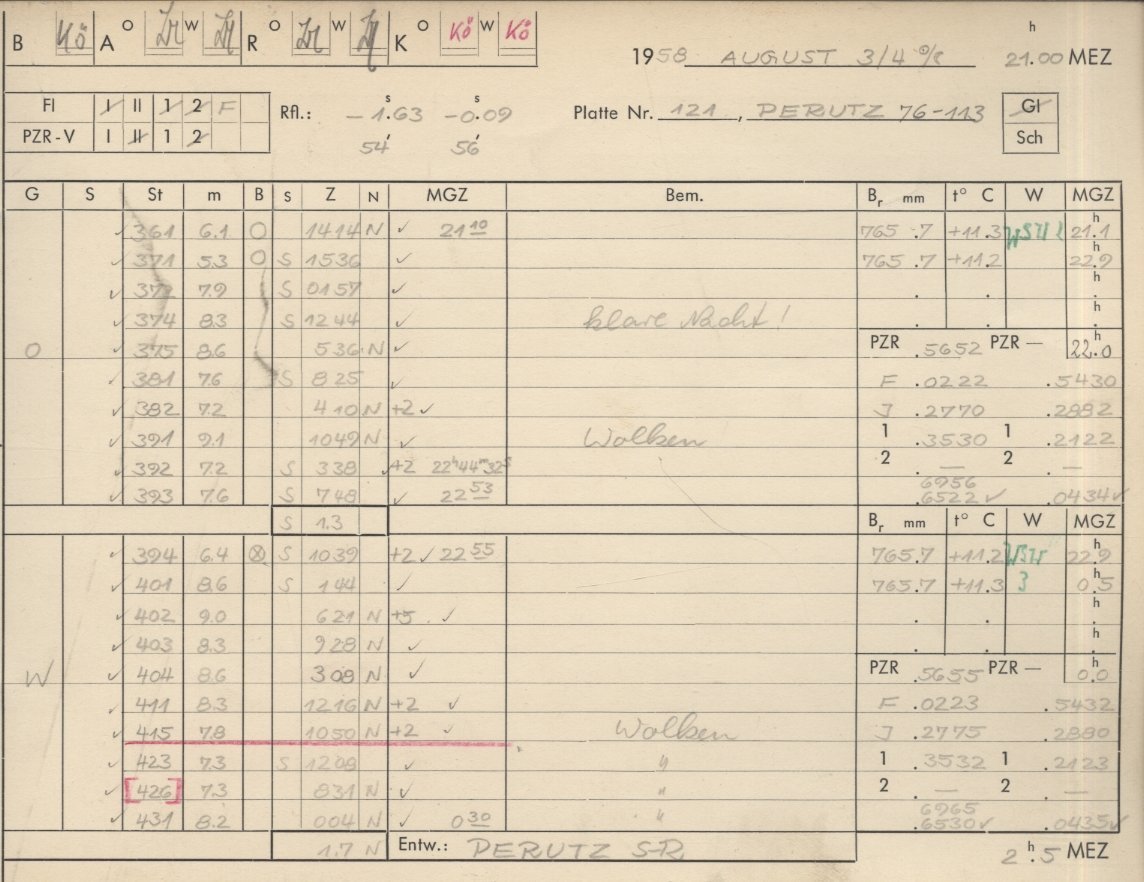 B Kö A O W R O W K O Kö W Kö
1958 AUGUST 3/4 h 21.00 MEZ
FI I II 1 2 F
PZR-V I II 1 2
Rfl.: -1.63 s -0.09 s
54' 56'
Platte Nr. 121, PERUTZ 76-113
Gl
Sch
G S St m B S Z N MGZ Bem. Br mm t° C W MGZ
✓ 361 6.1 O 1414 N ✓ 21 10 765.7 +11.3 21.1 h
✓ 371 5.3 O S 1536 ✓ 765.7 +11.2 22.9 h
✓ 372 7.9 S 0157 ✓ . . . h
✓ 374 8.3 S 1244 ✓ klare Nacht! . . . h
O ✓ 375 8.6 536 N ✓ PZR .5652 PZR — 22.0 h
✓ 381 7.6 S 825 ✓ F .0222 .5430
✓ 382 7.2 410 N +2 ✓ J .2770 .2882
✓ 391 9.1 1049 N ✓ Wolken 1 .3530 1 .2122
✓ 392 7.2 S 338 +2 22h44m32s 2 . — 2 . —
6956
✓ 393 7.6 S 748 ✓ 22 53 .6522 ✓ .0434 ✓
S 1.3 Br mm t° C W MGZ
✓ 394 6.4 ⊗ S 1039 +2 ✓ 22 55 765.7 +11.2 22.9 h
✓ 401 8.6 S 144 ✓ 765.7 +11.3 3 0.5 h
✓ 402 9.0 621 N +5 ✓ . . . h
✓ 403 8.3 928 N ✓ . . . h
W ✓ 404 8.6 308 N ✓ PZR .5655 PZR — 0.0 h
✓ 411 8.3 1216 N +2 ✓ F .0223 .5432
✓ 415 7.8 1050 N +2 ✓ Wolken J .2775 .2880
✓ 423 7.3 S 1208 ✓ " 1 .3532 1 .2123
✓ [426] 7.3 831 N ✓ " 2 . — 2 . —
6965
✓ 431 8.2 004 N ✓ 0 30 " .6530 ✓ .0435 ✓
1.7 N Entw.: PERUTZ S-R 2 h.5 MEZ